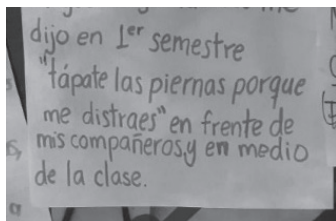 dijo en 1er semestre
"tápate las piernas porque
me distraes" en frente de
mis compañeros, y en medio
de la clase.